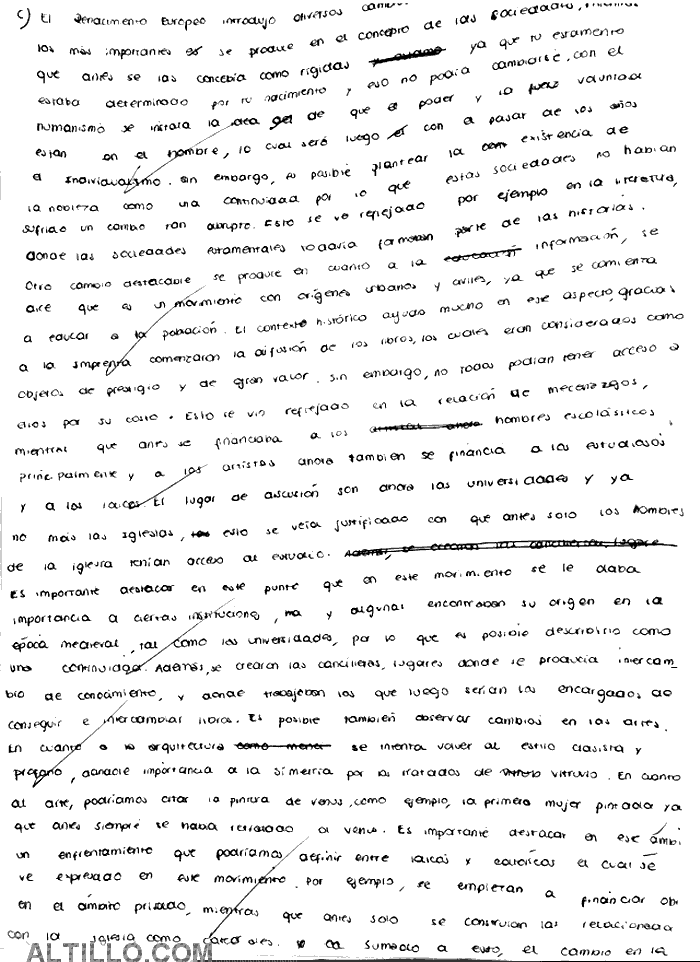 c) El Renacimiento Europeo introdujo diversos
los más importantes es se produce en el concepto de las sociedades,
que antes se las concebía como rígidas ya que tu estamento
estaba determinado por tu nacimiento y eso no podía cambiarse, con el
humanismo se instala la idea de que el poder y la voluntad
están en el hombre, lo cual será luego con a pasar de los años
el Individualismo. Sin embargo, es posible plantear la existencia de
la nobleza como una continuidad por lo que estas sociedades no habían
sufrido un cambio tan abrupto. Esto se ve reflejado por ejemplo en la literatura,
donde las sociedades estamentales todavía formaban parte de las historias.
Otro cambio destacable se produce en cuanto a la educación información, se
dice que es un movimiento con orígenes urbanos y civiles, ya que se comienza
a educar a la población. El contexto histórico ayudó mucho en este aspecto, gracias
a la Imprenta comenzaron la difusión de los libros, los cuales eran considerados como
objetos de prestigio y de gran valor. Sin embargo, no todos podían tener acceso a
ellos por su costo. Esto se vio reflejado en la relación de mecenazgos,
mientras que antes se financiaba a los hombres escolásticos
principalmente y a los artistas ahora también se financia a los estudiosos
y a los laicos. El lugar de discusión son ahora las universidades y ya
no más las Iglesias, esto se veía justificado con que antes solo los hombres
de la iglesia tenían acceso al estudio.
Es importante destacar en este punto que en este movimiento se le daba
importancia a ciertas instituciones, y algunas encontraban su origen en la
época medieval, tal como las universidades, por lo que es posible describirlo como
una continuidad. Además, se crearon las cancillerías, lugares donde se producía intercam-
bio de conocimiento, y donde trabajaban los que luego serían los encargados de
conseguir e intercambiar libros. Es posible también observar cambios en las artes.
En cuanto a la arquitectura como menor se intenta volver al estilo clasista y
profano, dándole importancia a la simetría por los tratados de Vitruvio. En cuanto
al arte, podríamos citar la pintura de venus, como ejemplo, la primera mujer pintada ya
que antes siempre se había retratado a venus. Es importante destacar en ese ámbi
un enfrentamiento que podríamos definir entre laicos y católicos el cual se
ve expresado en este movimiento. Por ejemplo, se empiezan a financiar ob
en el ámbito privado, mientras que antes solo se construían las relacionada
con la iglesia como catedrales. sumado a esto, el cambio en la
ALTILLO.COM